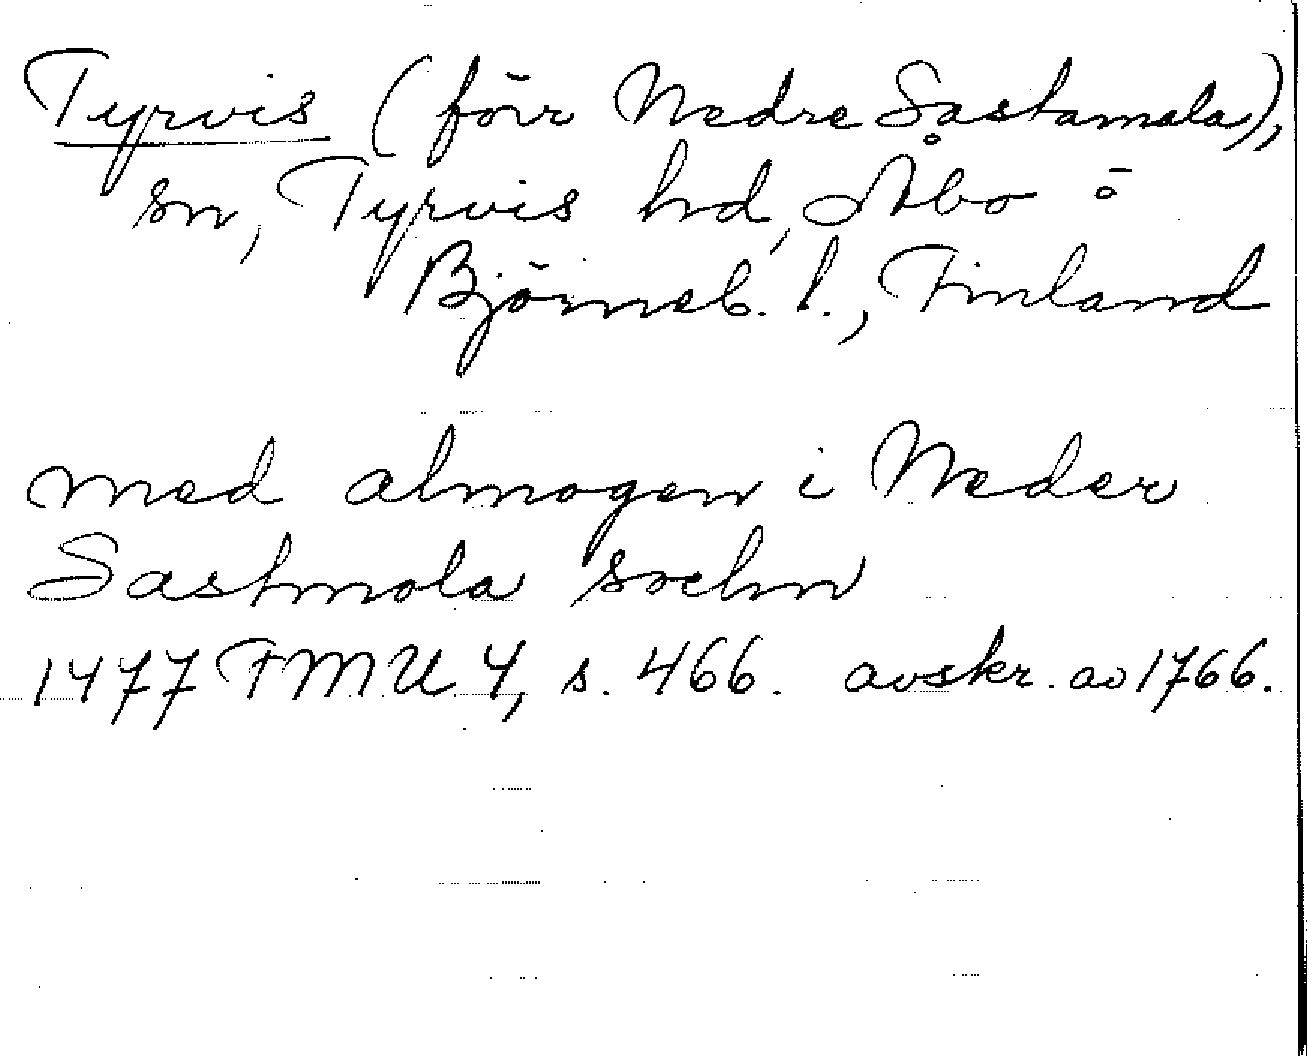 Tyrvis (förr Nedre Sastamala),
sn, Tyrvis hd, Åbo o
Björneb. l., Finland
med almogen i Neder
Sastmola sochn
1477 FMU 4, s. 466. avskr. av 1766.